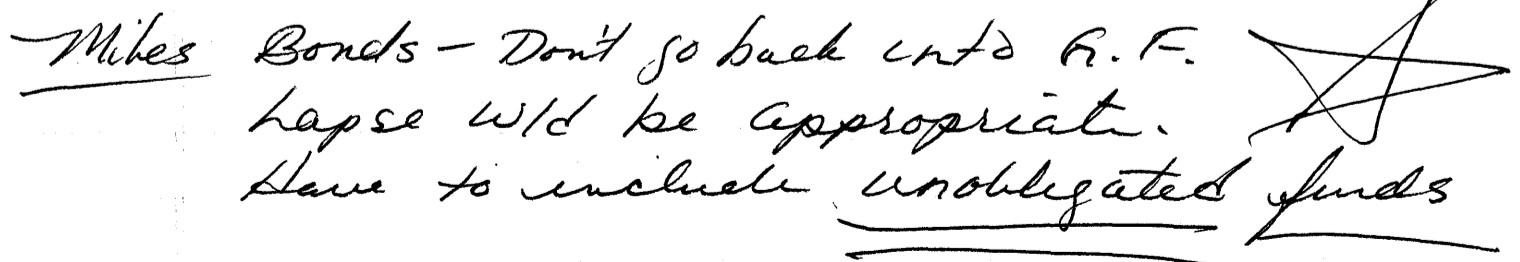 Miles Bonds - Don't go back into G.F.
Lapse w/d be appropriate.
Have to include unobligated funds